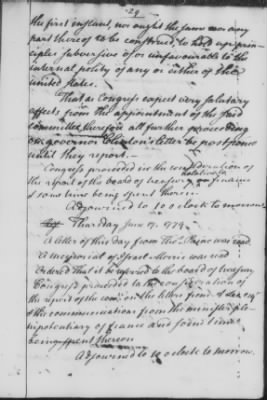 29
the first instant, nor ought the same nor any
part thereof to be construed, to hold up prin-
ciples subversive of or unfavourable to the
internal polity of any or either of these
united States.
That as Congress expect very salutary
effects from the appointment of the said
committee therefore all further proceeding
on governor Clinton's letter be postponed
until they report.—
Congress proceeded in the consideration of
the report of the board of treasury relative to finance
& some time being spent therein
Adjourned to 10 o'clock to morrow.
Thursday June 17. 1779.
A letter of this day from was read
A memorial of Israel Morris was read
Ordered that it be referred to the board of treasury
Congress proceeded to the consideration of
the report of the com on the letters from A Lee esqr
& the communications from the minister ple-
nipotentiary of france and some time
being spent thereon
Adjourned to o'clock to morrow.